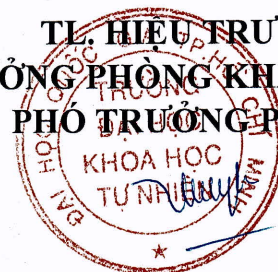 TL. HIỆU TRƯ
ỞNG PHÒNG KH
PHÓ TRƯỞNG P
ĐẠI HỌC QUỐC GIA TP. HỒ CHÍ MINH
TRƯỜNG
ĐẠI HỌC
KHOA HỌC
TỰ NHIÊN